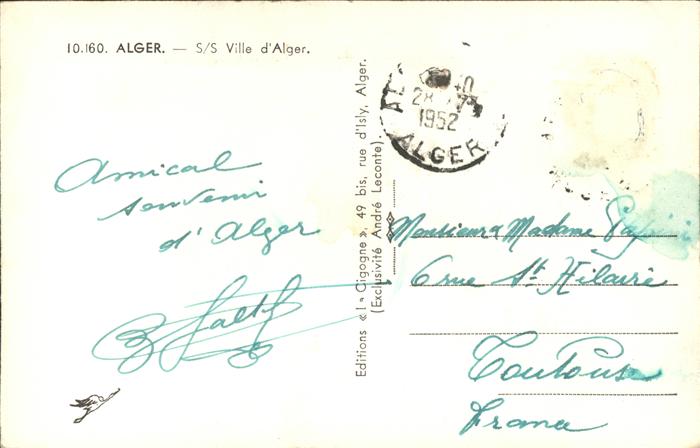 10.160. ALGER. — S/S Ville d'Alger.
Amical
souvenir
d'Alger
Editions « la Cigogne », 49 bis, rue d'Isly, Alger.
(Exclusivité André Leconte).
28
1952
ALGER
Monsieur & Madame
6 rue St Hilaire
Toulouse
France